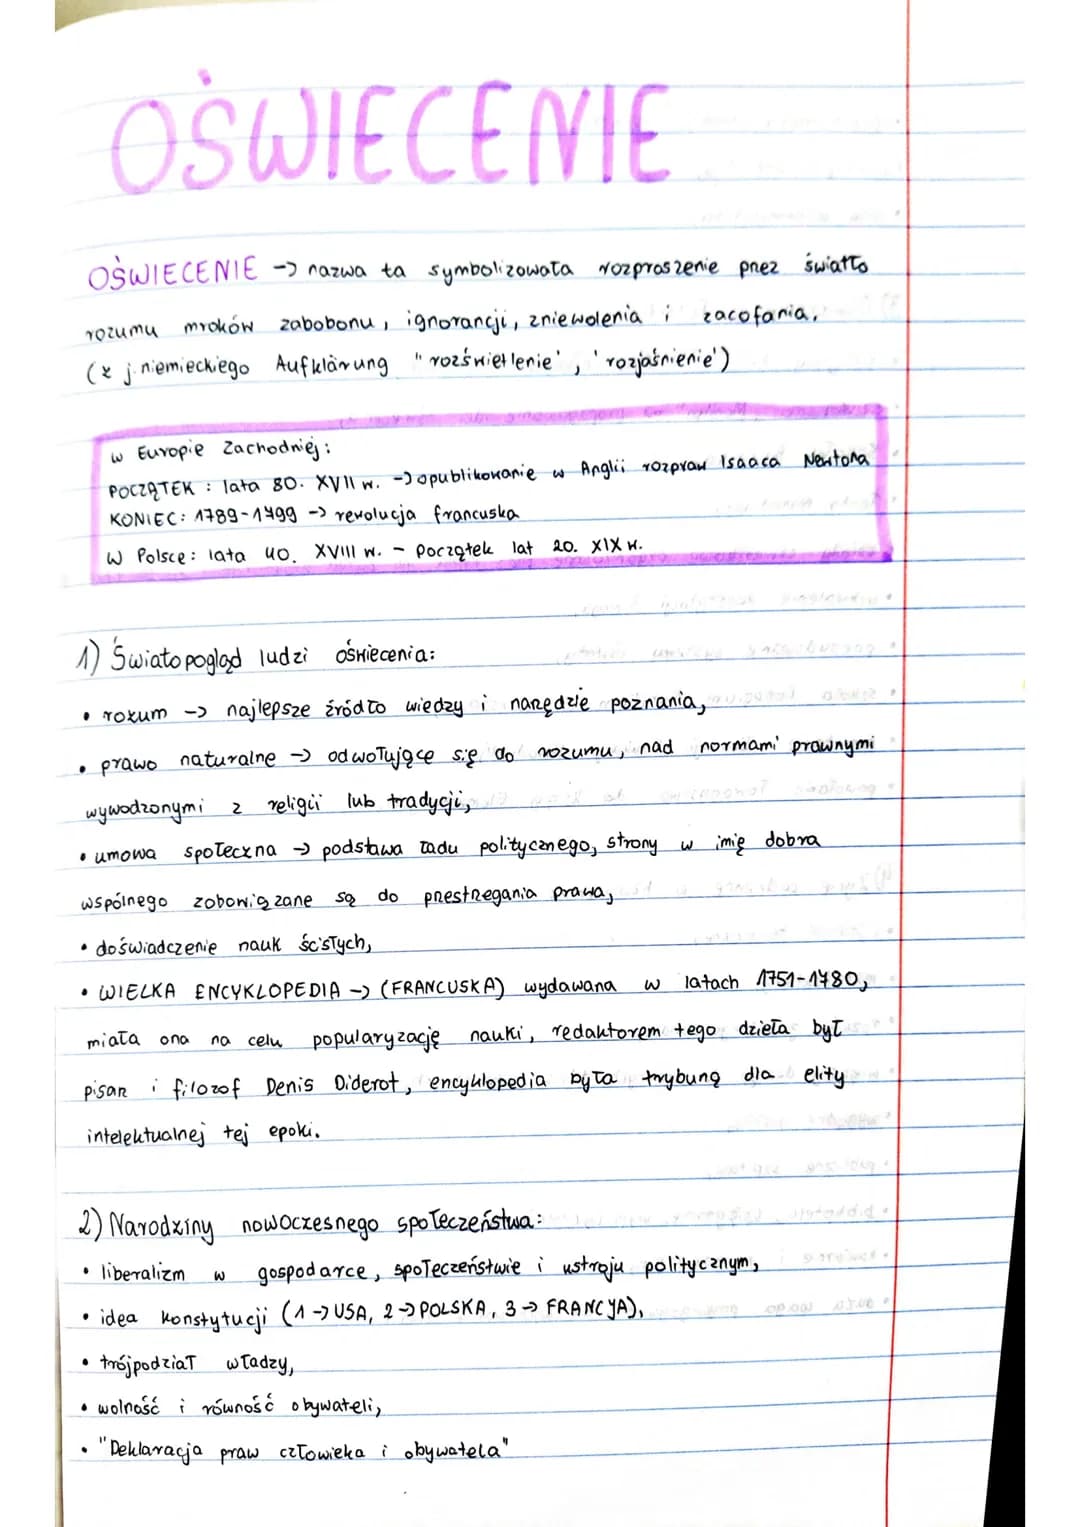 OŚWIECENIE
OŚWIECENIE -> nazwa ta symbolizowała rozproszenie przez światło
rozumu mroków zabobonu, ignorancji, zniewolenia i zacofania.
(z j. niemieckiego Aufklärung "rozświetlenie', 'rozjaśnienie')
w Europie Zachodniej:
POCZĄTEK: lata 80. XVII w. -> opublikowanie w Anglii rozpraw Isaaca Newtona
KONIEC: 1789-1799 -> rewolucja francuska
W Polsce: lata 40. XVIII w. - początek lat 20. XIX w.
1) Światopogląd ludzi oświecenia:
• rozum -> najlepsze źródło wiedzy i narzędzie poznania,
• prawo naturalne -> odwołujące się do rozumu, nad normami prawnymi
wywodzonymi z religii lub tradycji,
• umowa społeczna -> podstawa ładu politycznego, strony w imię dobra
wspólnego zobowiązane są do przestrzegania prawa,
• doświadczenie nauk ścisłych,
• WIELKA ENCYKLOPEDIA -> (FRANCUSKA) wydawana w latach 1751-1780,
miała ona na celu popularyzację nauki, redaktorem tego dzieła był
pisarz i filozof Denis Diderot, encyklopedia była trybuną dla elity
intelektualnej tej epoki.
2) Narodziny nowoczesnego społeczeństwa:
• liberalizm w gospodarce, społeczeństwie i ustroju politycznym,
• idea konstytucji (1 -> USA, 2 -> POLSKA, 3 -> FRANCJA),
• trójpodział władzy,
• wolność i równość obywateli,
• "Deklaracja praw człowieka i obywatela"